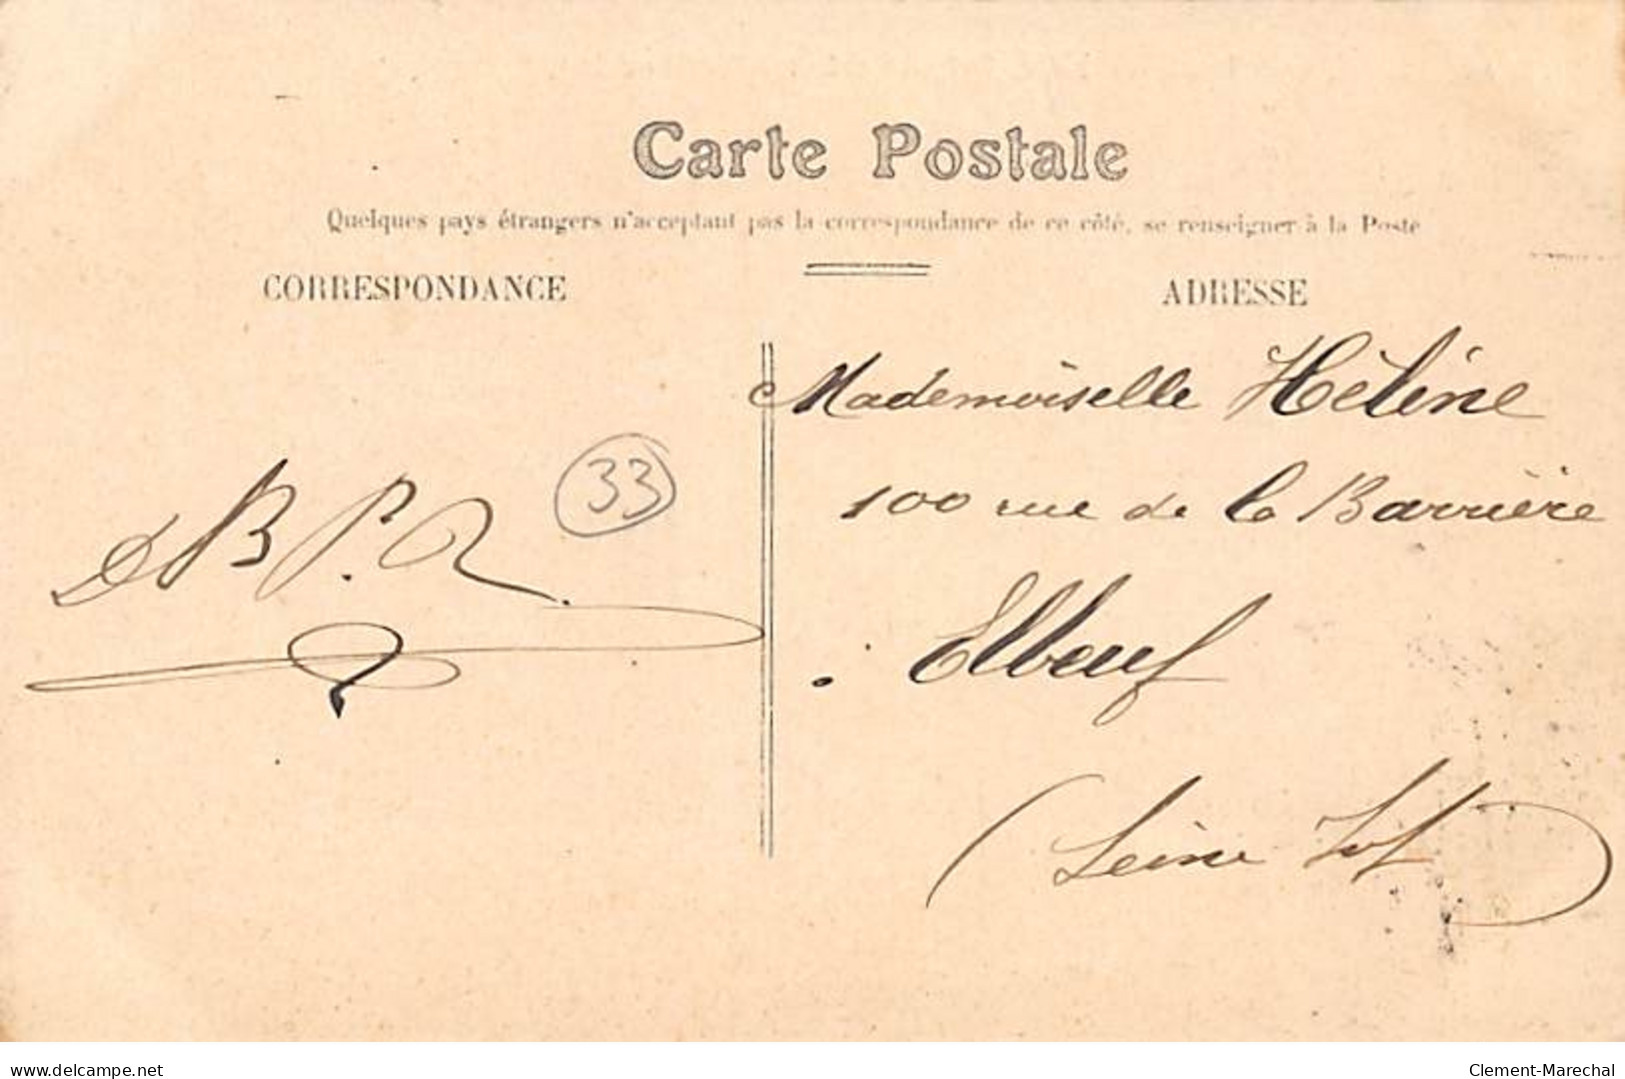 Carte Postale
Quelques pays étrangers n'acceptant pas la correspondance de ce côté, se renseigner à la Poste
CORRESPONDANCE
ADRESSE
Mademoiselle Hélène
100 rue de la Barrière
Elbeuf
(Seine Inf)
33
www.delcampe.net
Clement-Marechal